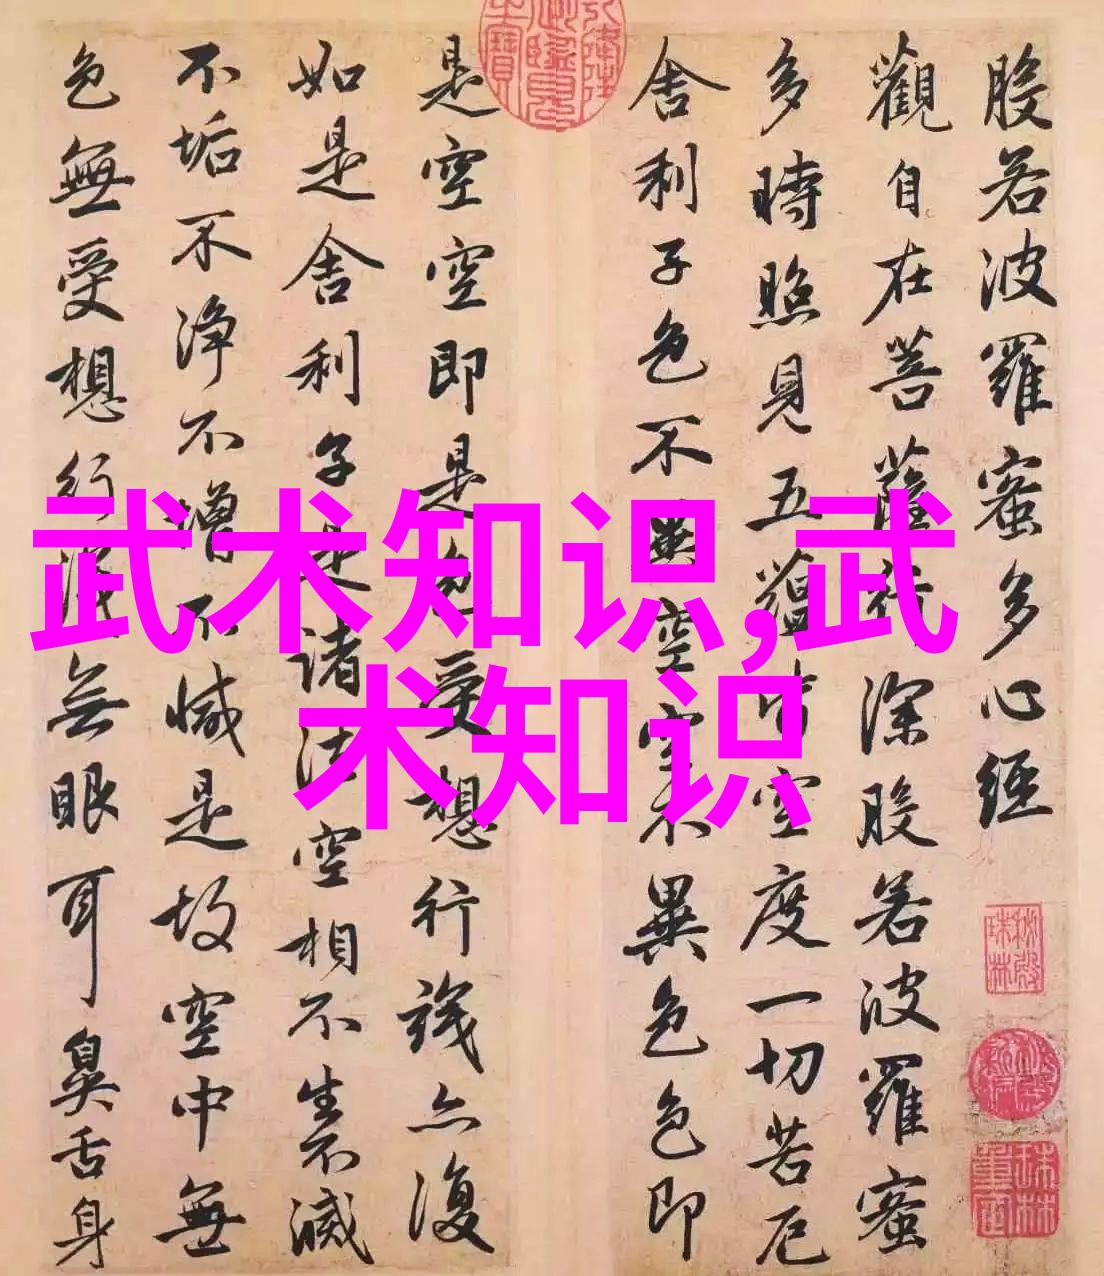 般若波羅蜜多心経
觀自在菩薩行深般若波羅蜜
多時照見五蘊皆空度一切苦厄
舍利子色不異空空不異色色即
是空空即是色受想行識亦復
如是舍利子是諸法空相不生不滅
不垢不净不增不減是故空中無
色無受想行識無眼耳鼻舌身
武术知识,武
术知识